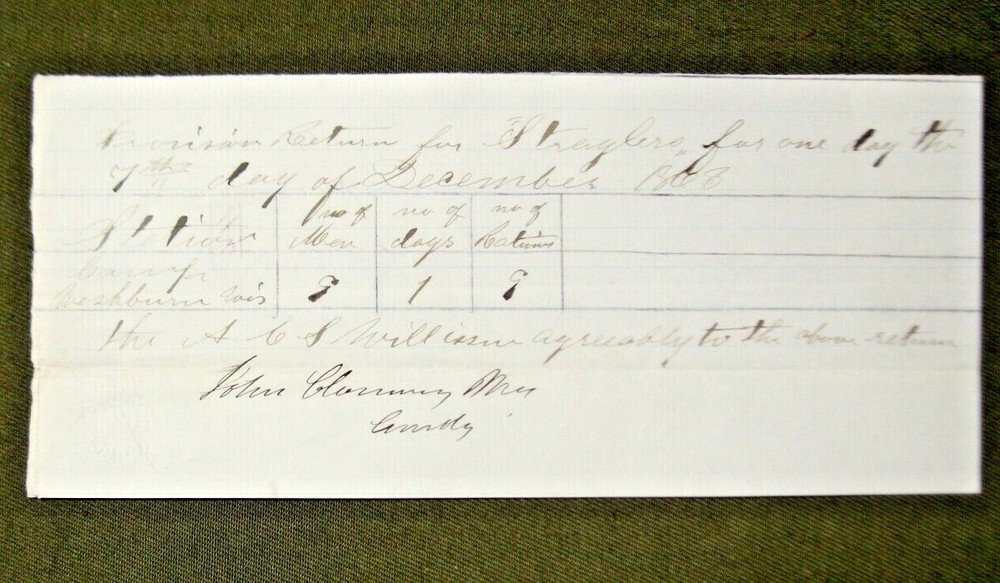 Provision Return for "Straglers" for one day the
7th day of December 1863
Station no of Men no of days no of Rations
Camp Washburn Wis 9 1 9
the A C S Will issue agreeably to the above return
John Clowney
Comdg